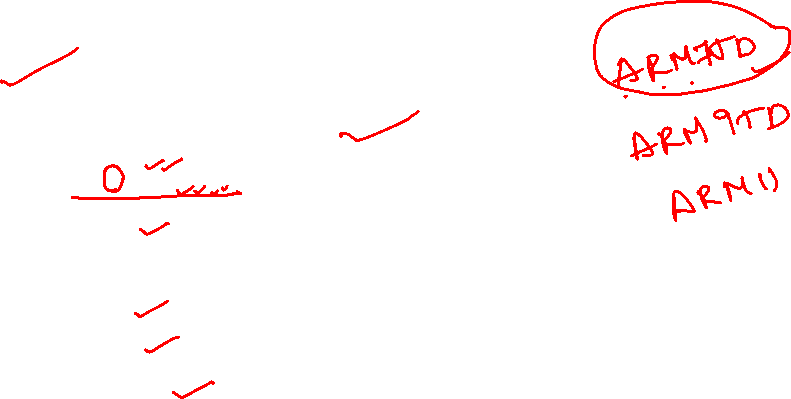 ARM7TD
ARM9TD
ARM11
0